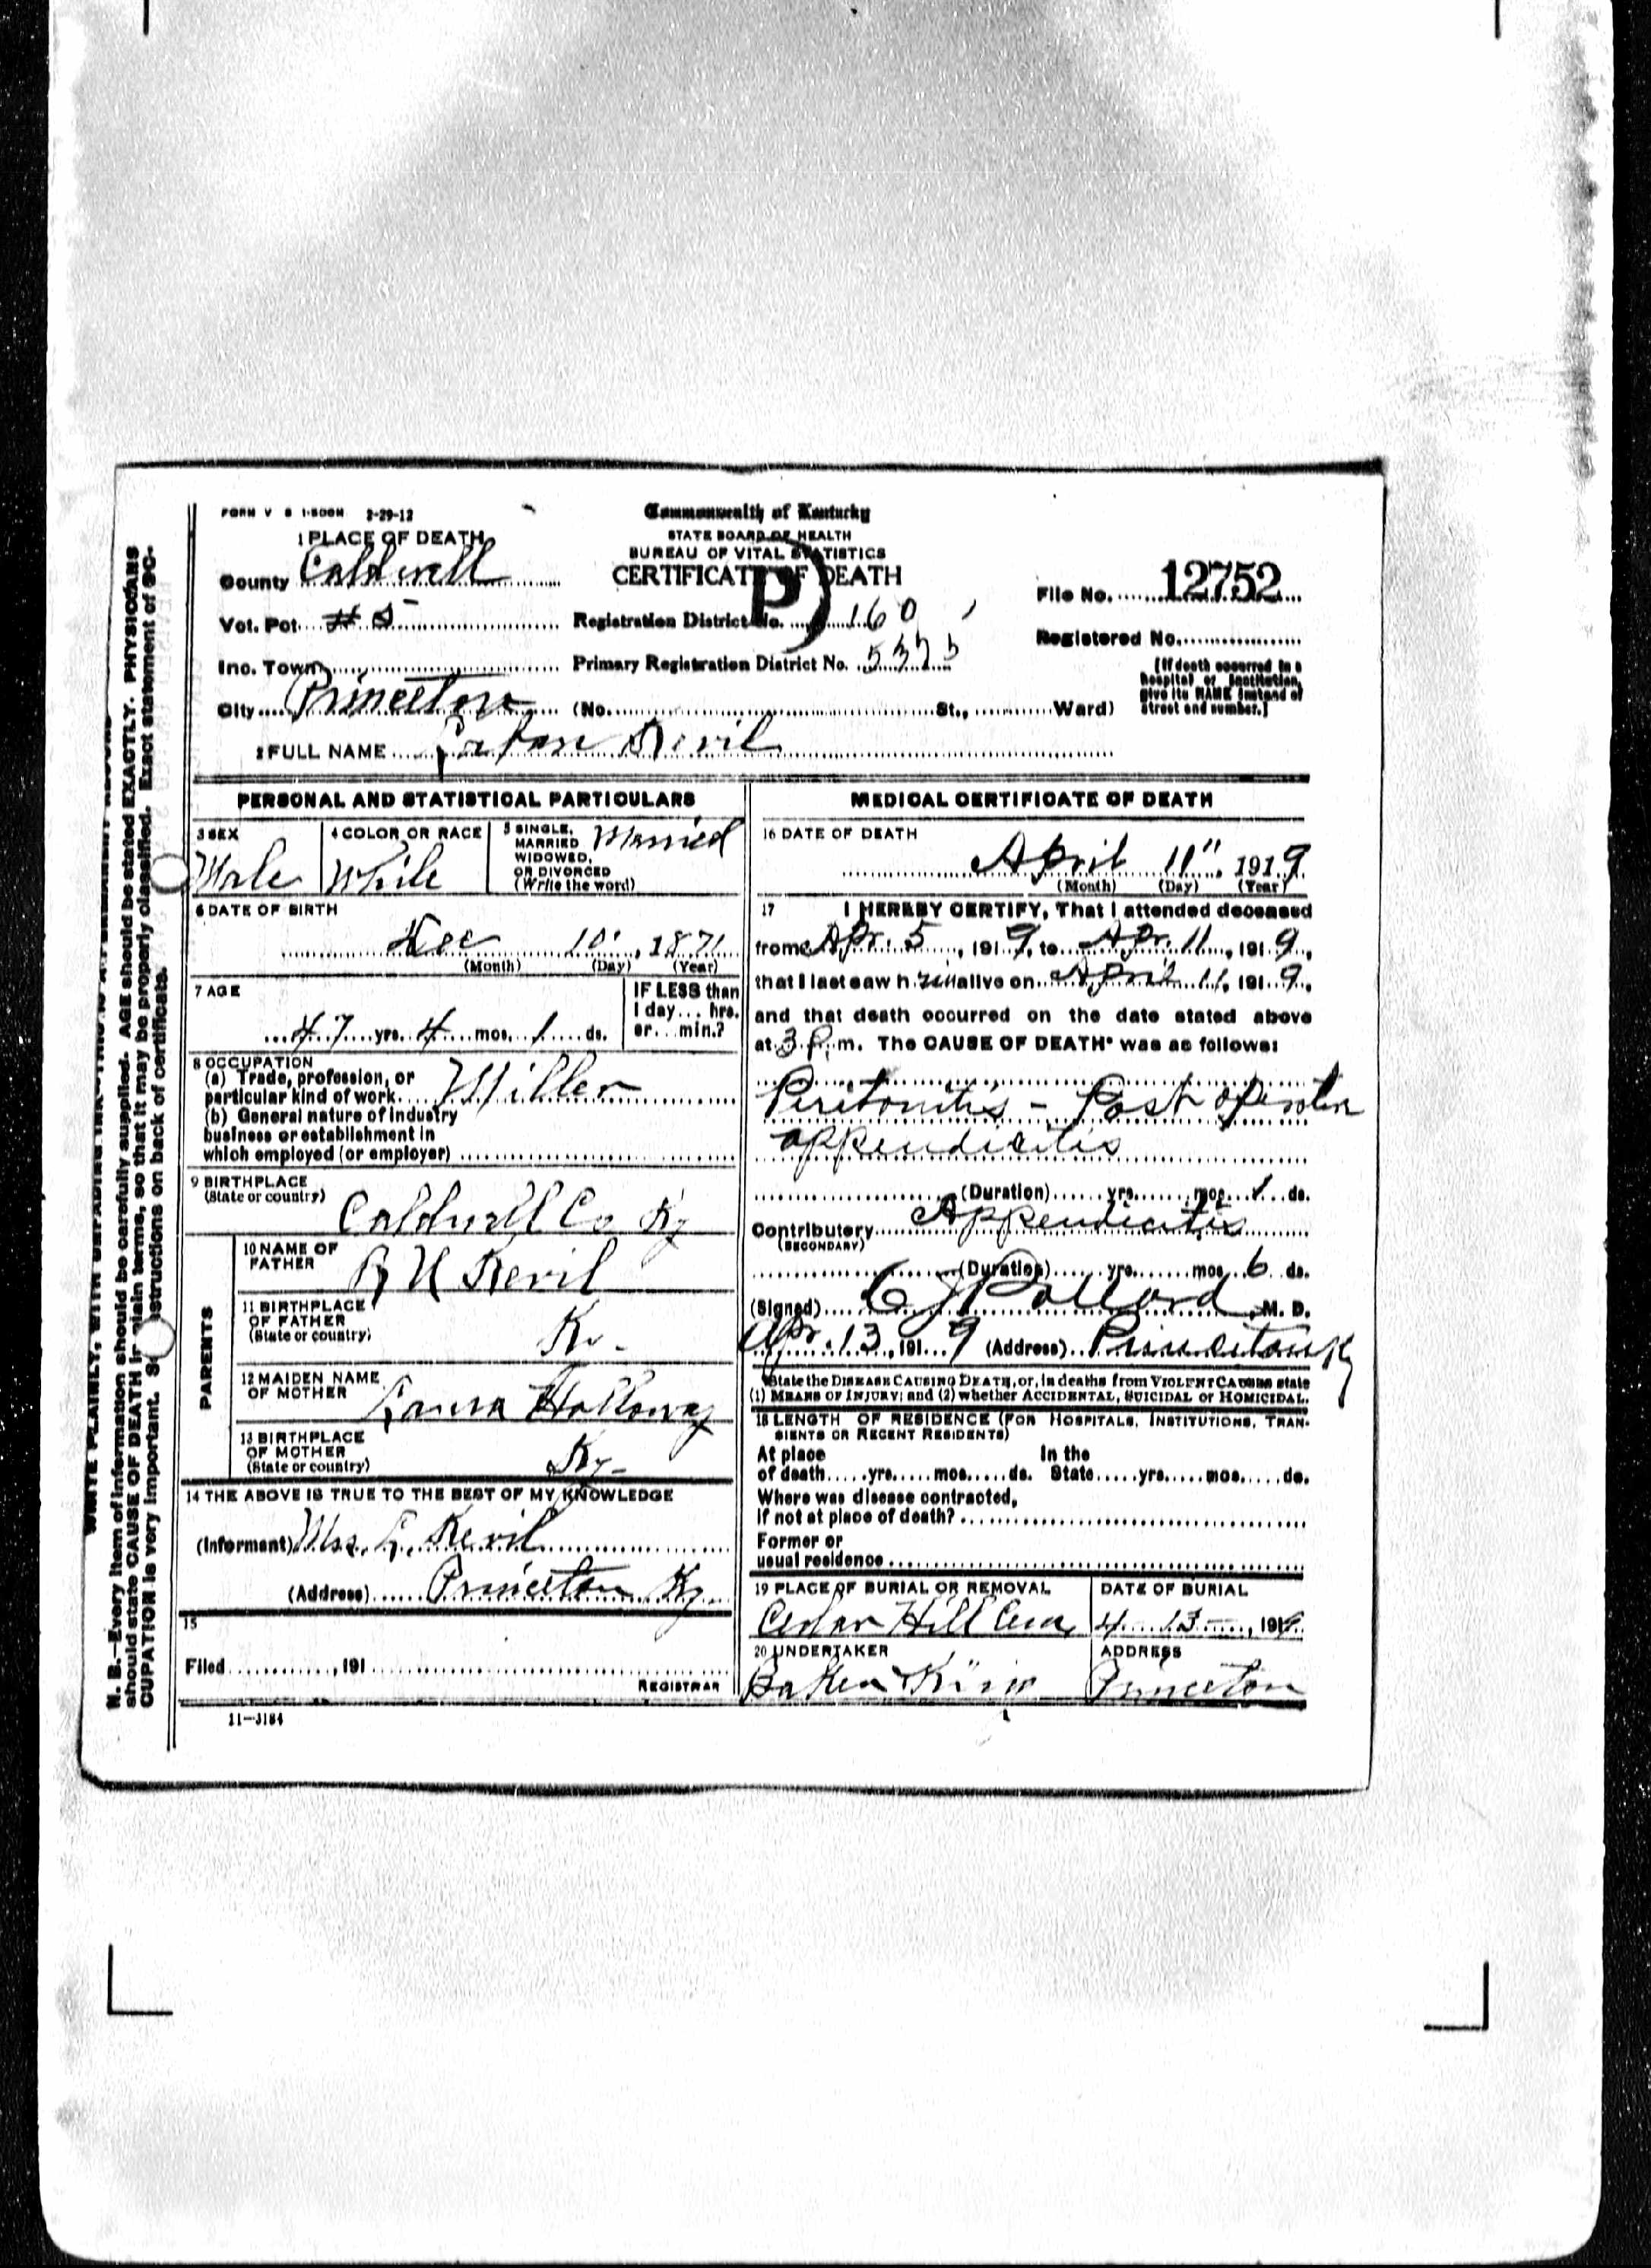 FORM V S 1-500M 2-29-12
Commonwealth of Kentucky
STATE BOARD OF HEALTH
BUREAU OF VITAL STATISTICS
CERTIFICATE OF DEATH
P)
1 PLACE OF DEATH
County Caldwell
Vot. Pct. # 5
Inc. Town
City Princeton (No. St., Ward)
Registration District No. 160
Primary Registration District No. 5375
File No. 12752
Registered No.
[If death occurred in a
hospital or institution,
give its NAME instead of
street and number.]
2 FULL NAME Revil
PERSONAL AND STATISTICAL PARTICULARS
3 SEX Male
4 COLOR OR RACE White
5 SINGLE, MARRIED WIDOWED, OR DIVORCED (Write the word) Married
6 DATE OF BIRTH
Dec 10, 1871
(Month) (Day) (Year)
7 AGE
47 yrs. 4 mos. 1 ds.
IF LESS than
1 day... hrs.
or... min.?
8 OCCUPATION
(a) Trade, profession, or
particular kind of work Miller
(b) General nature of industry
business or establishment in
which employed (or employer)
9 BIRTHPLACE
(State or country) Caldwell Co Ky
PARENTS
10 NAME OF
FATHER R U Revil
11 BIRTHPLACE
OF FATHER
(State or country) Ky.
12 MAIDEN NAME
OF MOTHER Laura Holloway
13 BIRTHPLACE
OF MOTHER
(State or country) Ky-
14 THE ABOVE IS TRUE TO THE BEST OF MY KNOWLEDGE
(Informant) Mrs. L. Revil
(Address) Princeton Ky.
15
Filed, 191
REGISTRAR
11-3184
MEDICAL CERTIFICATE OF DEATH
16 DATE OF DEATH
April 11", 1919
(Month) (Day) (Year)
17 I HEREBY CERTIFY, That I attended deceased
from Apr. 5, 1919, to Apr. 11, 1919,
that I last saw him alive on April 11, 1919,
and that death occurred on the date stated above
at 3 P. m. The CAUSE OF DEATH* was as follows:
Peritonitis - Post
appendicitis
(Duration) yrs. mos. 1 ds.
Contributory Appendicitis
(SECONDARY)
(Duration) yrs. mos 6 ds.
(Signed) C J Pollard, M. D.
Apr. 13, 1919 (Address) Princeton Ky
*State the DISEASE CAUSING DEATH, or, in deaths from VIOLENT CAUSES state
(1) MEANS OF INJURY; and (2) whether ACCIDENTAL, SUICIDAL or HOMICIDAL.
18 LENGTH OF RESIDENCE (FOR HOSPITALS, INSTITUTIONS, TRAN-
SIENTS OR RECENT RESIDENTS)
At place In the
of death yrs. mos. ds. State yrs. mos. ds.
Where was disease contracted,
If not at place of death?
Former or
usual residence
19 PLACE OF BURIAL OR REMOVAL
Cedar Hill Cem
DATE OF BURIAL
4-13-, 1919
20 UNDERTAKER
Baker
ADDRESS
Princeton
N. B.—Every item of information should be carefully supplied. AGE should be stated EXACTLY. PHYSICIANS
should state CAUSE OF DEATH in plain terms, so that it may be properly classified. Exact statement of OC-
CUPATION is very important. See instructions on back of certificate.